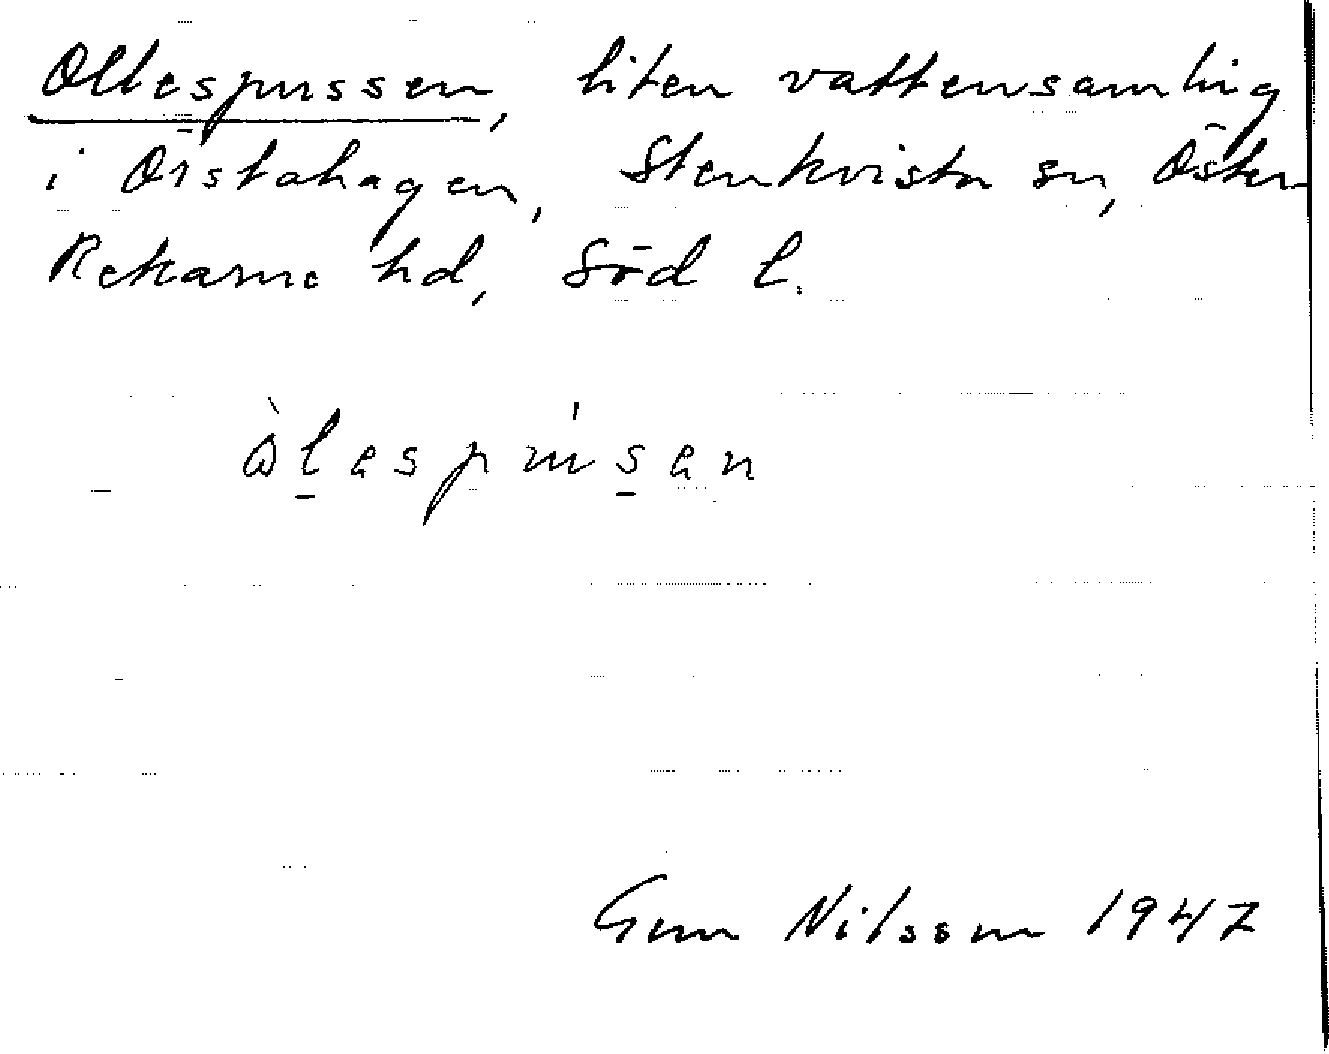 Ollespussen, liten vattensamling
i Örstahagen, Stenkvista sn, Öster-
Rekarne hd, Söd l.
Gun Nilsson 1947